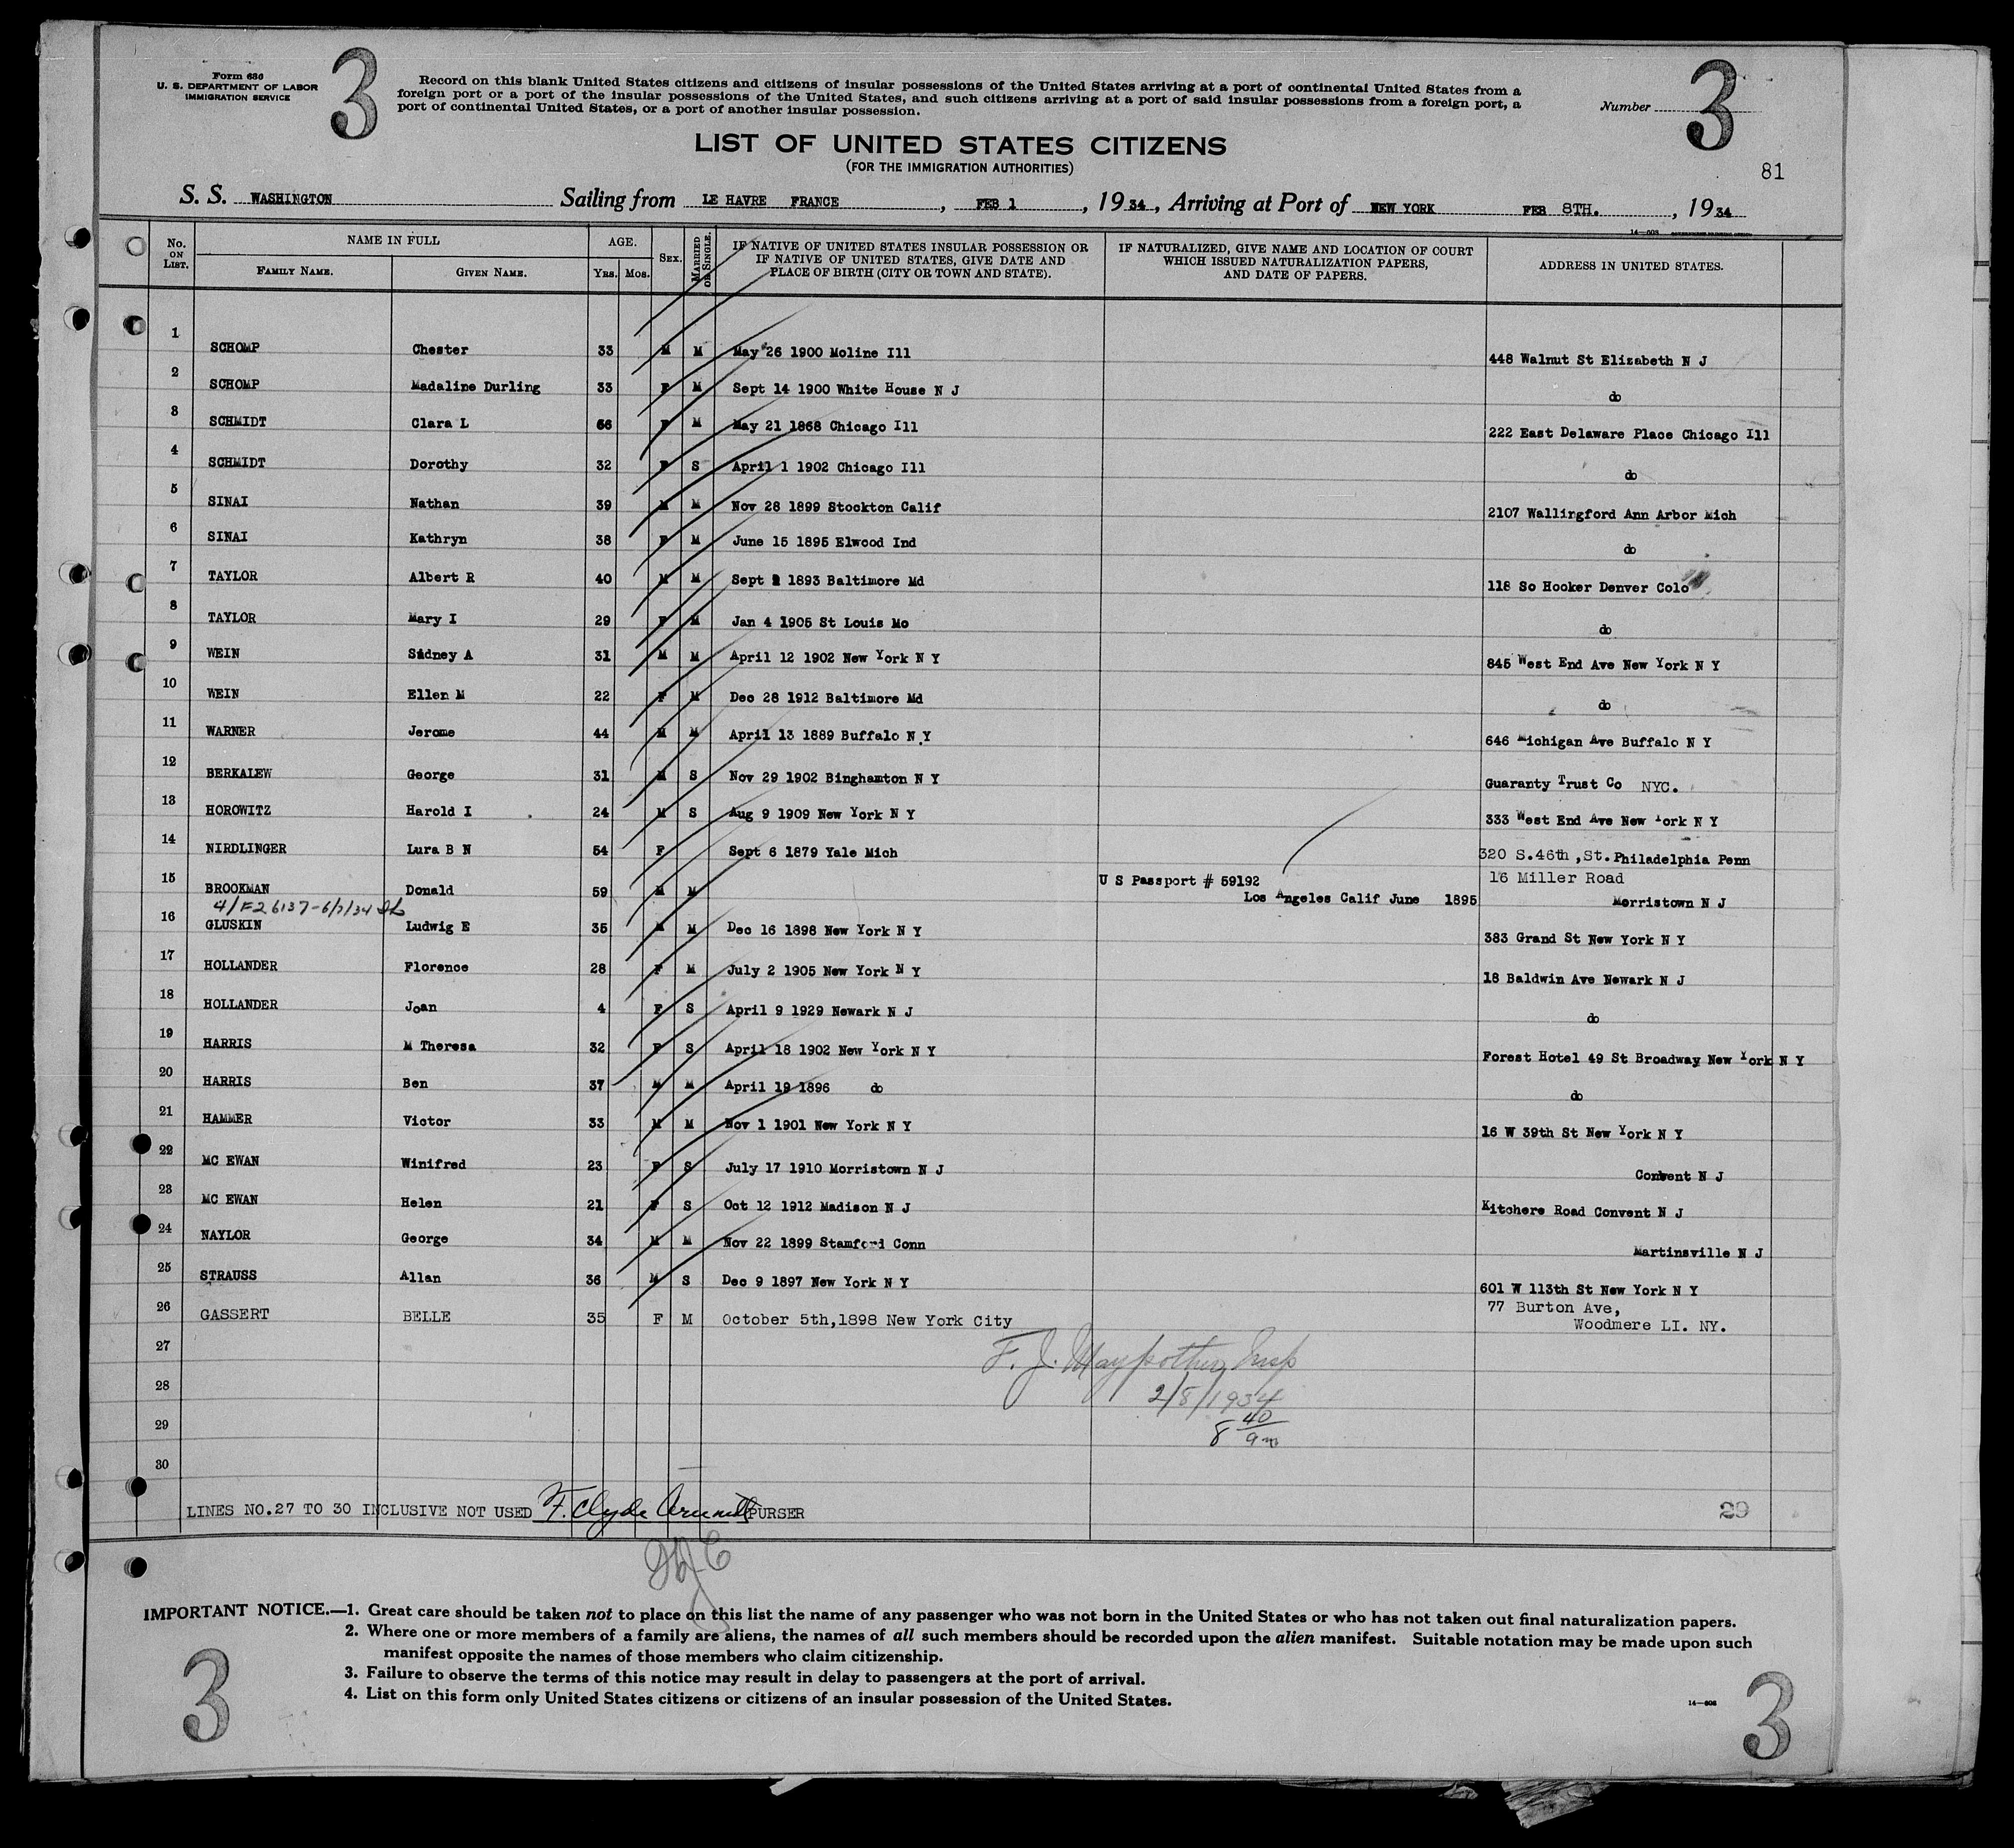 Form 686
U. S. DEPARTMENT OF LABOR
IMMIGRATION SERVICE
3
Record on this blank United States citizens and citizens of insular possessions of the United States arriving at a port of continental United States from a
foreign port or a port of the insular possessions of the United States, and such citizens arriving at a port of said insular possessions from a foreign port, a
port of continental United States, or a port of another insular possession.
Number 3
LIST OF UNITED STATES CITIZENS
(FOR THE IMMIGRATION AUTHORITIES)
81
S. S. WASHINGTON Sailing from LE HAVRE FRANCE , FEB 1 , 1934, Arriving at Port of NEW YORK FEB 8TH. , 1934
No. ON LIST. NAME IN FULL FAMILY NAME. GIVEN NAME. AGE. Yrs. Mos. SEX. MARRIED OR SINGLE. IF NATIVE OF UNITED STATES INSULAR POSSESSION OR IF NATIVE OF UNITED STATES, GIVE DATE AND PLACE OF BIRTH (CITY OR TOWN AND STATE). IF NATURALIZED, GIVE NAME AND LOCATION OF COURT WHICH ISSUED NATURALIZATION PAPERS, AND DATE OF PAPERS. ADDRESS IN UNITED STATES.
1 SCHOMP Chester 33 M M May 26 1900 Moline Ill 448 Walnut St Elizabeth N J
2 SCHOMP Madaline Durling 33 F M Sept 14 1900 White House N J do
3 SCHMIDT Clara L 66 F M May 21 1868 Chicago Ill 222 East Delaware Place Chicago Ill
4 SCHMIDT Dorothy 32 F S April 1 1902 Chicago Ill do
5 SINAI Nathan 39 M M Nov 28 1899 Stockton Calif 2107 Wallingford Ann Arbor Mich
6 SINAI Kathryn 38 F M June 15 1895 Elwood Ind do
7 TAYLOR Albert R 40 M M Sept 1893 Baltimore Md 118 So Hooker Denver Colo
8 TAYLOR Mary I 29 F M Jan 4 1905 St Louis Mo do
9 WEIN Sidney A 31 M M April 12 1902 New York N Y 845 West End Ave New York N Y
10 WEIN Ellen M 22 F M Dec 28 1912 Baltimore Md do
11 WARNER Jerome 44 M M April 13 1889 Buffalo N Y 646 Michigan Ave Buffalo N Y
12 BERKALEW George 31 M S Nov 29 1902 Binghamton N Y Guaranty Trust Co NYC.
13 HOROWITZ Harold I 24 M S Aug 9 1909 New York N Y 333 West End Ave New York N Y
14 NIRDLINGER Lura B N 54 F Sept 6 1879 Yale Mich 320 S.46th ,St. Philadelphia Penn
15 BROOKMAN Donald 59 M M U S Passport # 59192 16 Miller Road
Los Angeles Calif June 1895 Morristown N J
4/F26137-6/7/34
16 GLUSKIN Ludwig E 35 M M Dec 16 1898 New York N Y 383 Grand St New York N Y
17 HOLLANDER Florence 28 F M July 2 1905 New York N Y 18 Baldwin Ave Newark N J
18 HOLLANDER Joan 4 F S April 9 1929 Newark N J do
19 HARRIS M Theresa 32 F S April 18 1902 New York N Y Forest Hotel 49 St Broadway New York N Y
20 HARRIS Ben 37 M M April 19 1896 do do
21 HAMMER Victor 33 M M Nov 1 1901 New York N Y 16 W 39th St New York N Y
22 MC EWAN Winifred 23 F S July 17 1910 Morristown N J Convent N J
23 MC EWAN Helen 21 F S Oct 12 1912 Madison N J Kitchere Road Convent N J
24 NAYLOR George 34 M M Nov 22 1899 Stamford Conn Martinsville N J
25 STRAUSS Allan 36 M S Dec 9 1897 New York N Y 601 W 113th St New York N Y
26 GASSERT BELLE 35 F M October 5th,1898 New York City 77 Burton Ave,
Woodmere LI. NY.
27
28
29
30
F. J. Maypother Insp
2/8/1934
8 40/am
LINES NO.27 TO 30 INCLUSIVE NOT USED F. Clyde PURSER
29
IMPORTANT NOTICE.—1. Great care should be taken not to place on this list the name of any passenger who was not born in the United States or who has not taken out final naturalization papers.
2. Where one or more members of a family are aliens, the names of all such members should be recorded upon the alien manifest. Suitable notation may be made upon such
manifest opposite the names of those members who claim citizenship.
3. Failure to observe the terms of this notice may result in delay to passengers at the port of arrival.
4. List on this form only United States citizens or citizens of an insular possession of the United States.
3
14—608
3